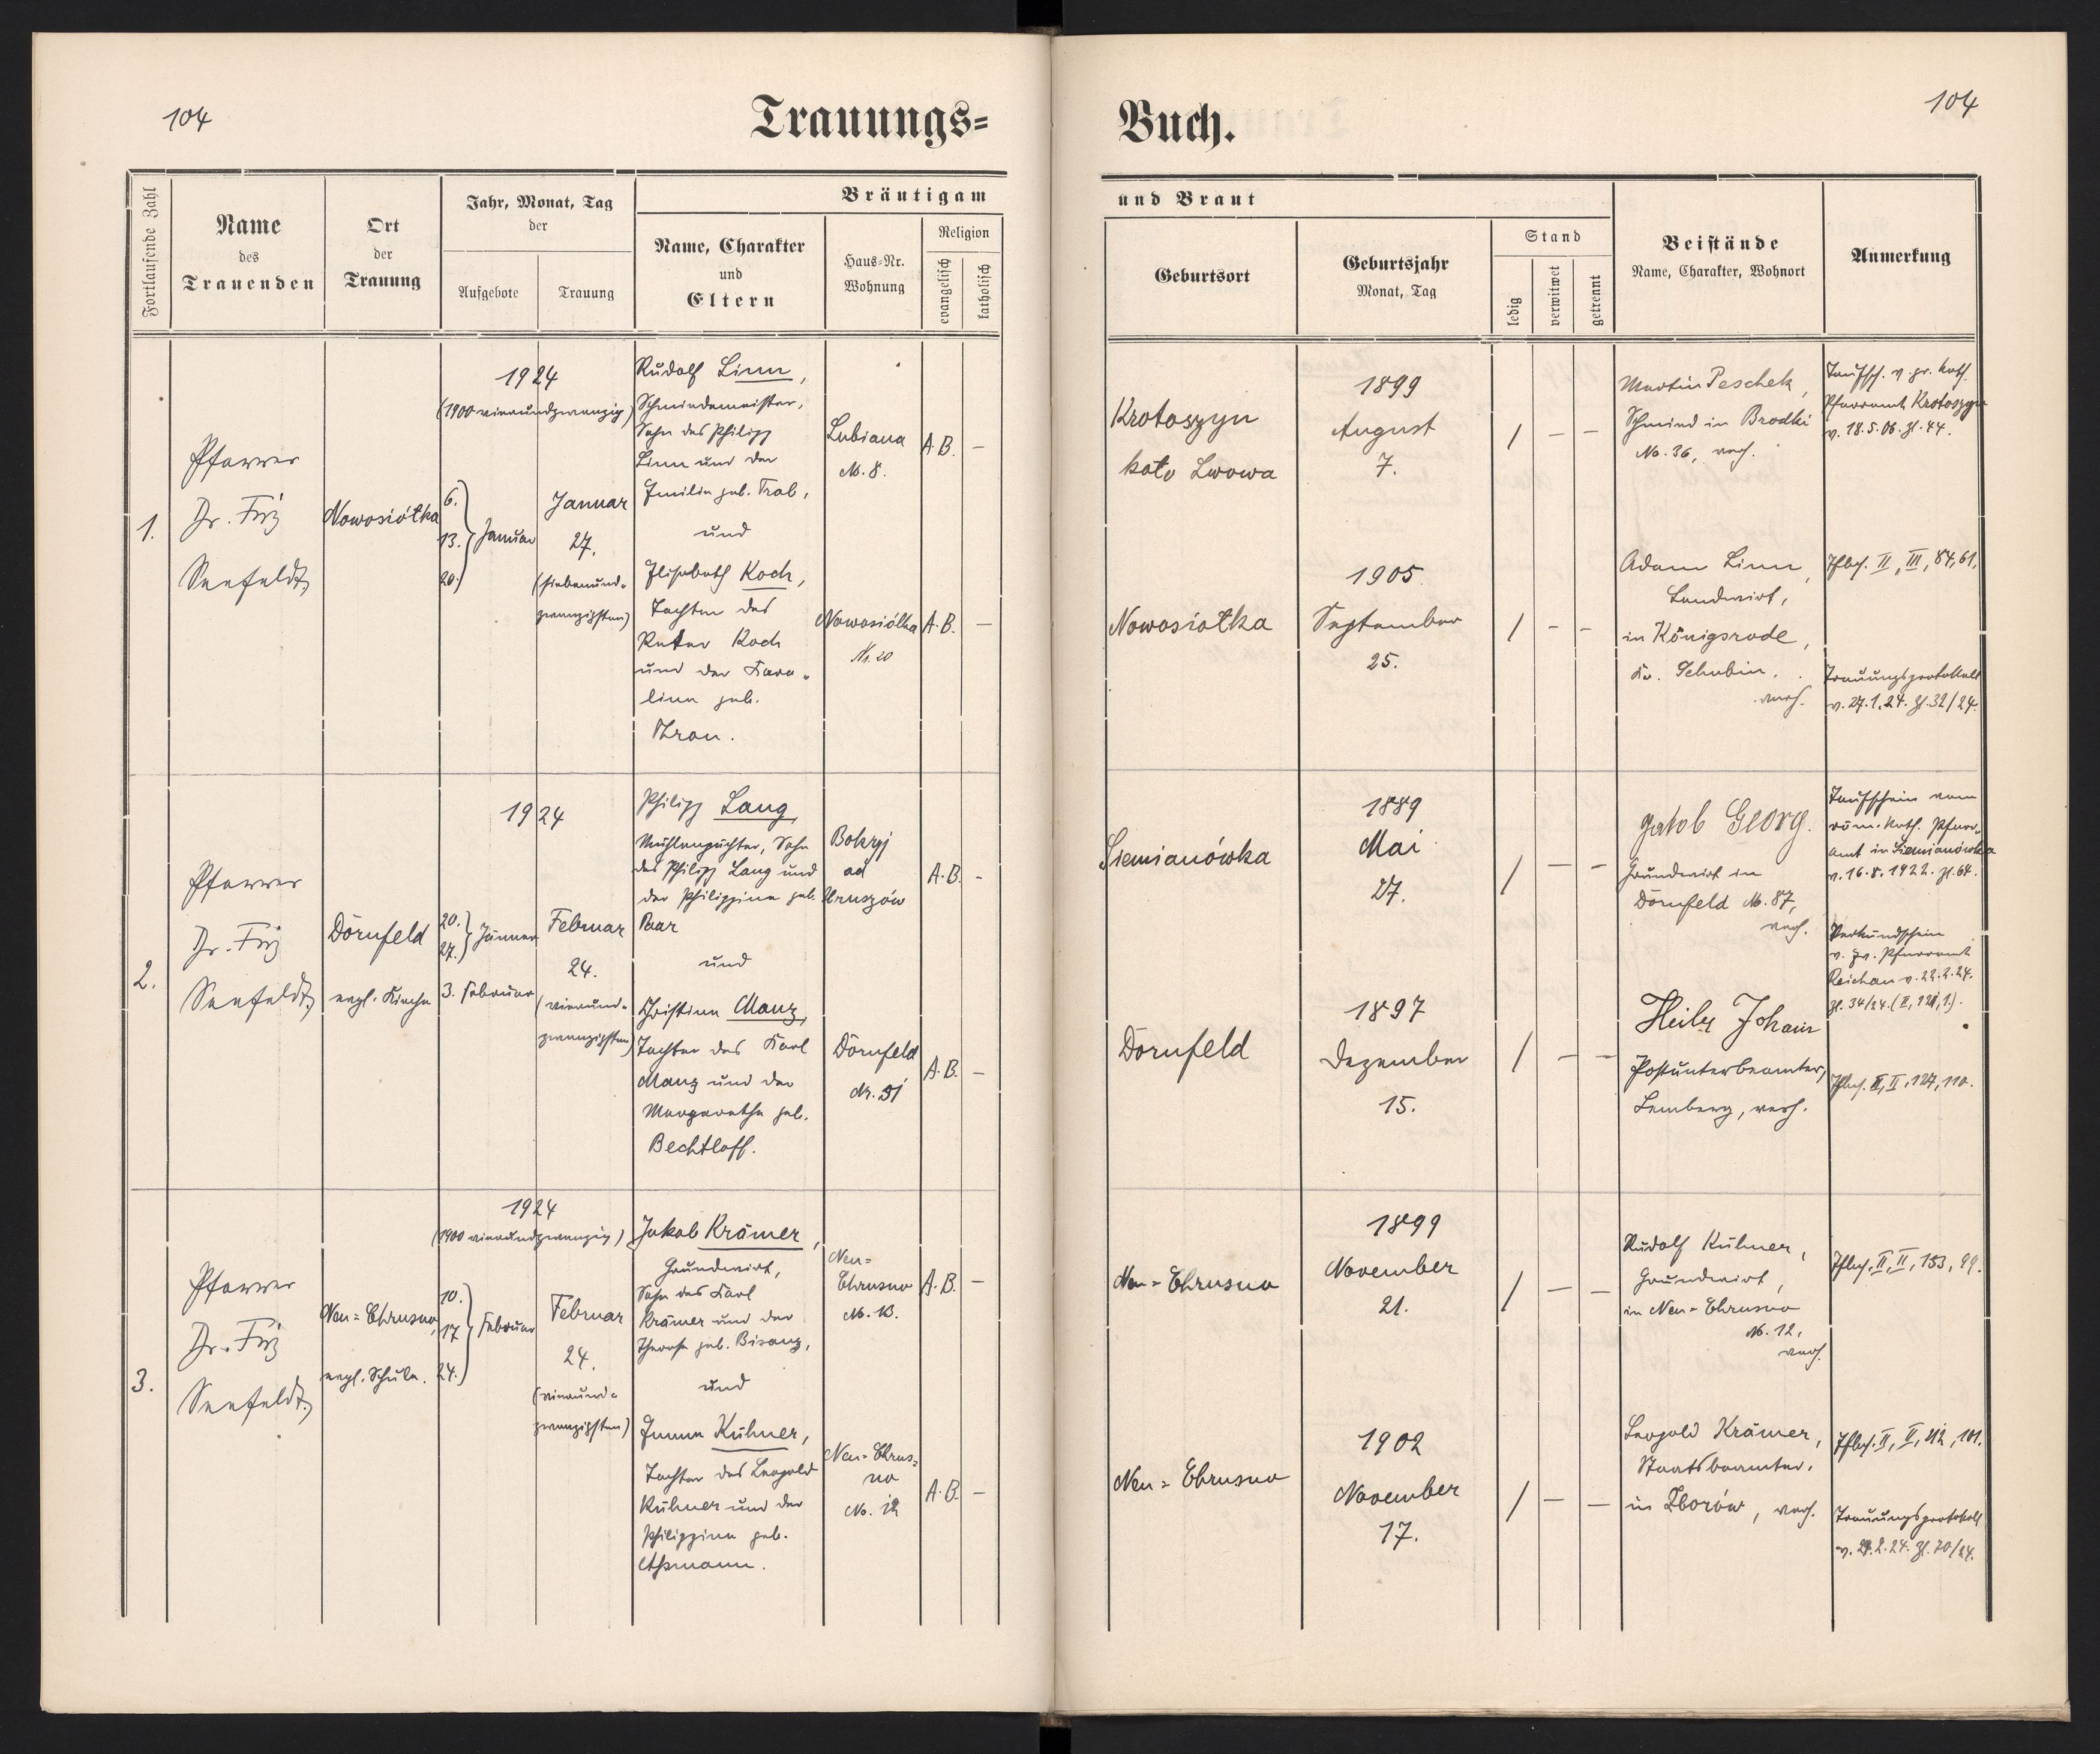 104
Trauungs=
Fortlaufende Zahl
Name
des
Trauenden
Ort
der
Trauung
Jahr, Monat, Tag
der
Aufgebote
Trauung
Bräutigam
Name, Charakter
und
Eltern
Haus=Nr.
Wohnung
Religion
evangelisch
katholisch
1.
Pfarrer
Dr. Friz
Seefeldt
Nowosiółka
1924
(1900 vierundzwanzig)
6.
13. Januar
20.
Januar
27.
(siebenund-
zwanzigsten)
Rudolf Linn,
Schmiedemeister,
Sohn des Philipp
Linn und der
Emilie geb. Trab,
und
Elisabeth Koch,
Tochter des
Peter Koch
und der Karo-
line geb.
Thron.
Lubiana
No. 8.
A.B. –
Nowosiółka
Nr. 20
A.B. –
2.
Pfarrer
Dr. Friz
Seefeldt
Dornfeld
evgl. Kirche
1924
20.
27. Jänner
3. Februar
Februar
24.
(vierund-
zwanzigsten)
Philipp Lang,
Mühlenpächter, Sohn
des Philipp Lang und
der Philippine geb.
Paar
und
Christine Manz,
Tochter des Karl
Manz und der
Margarethe geb.
Bechtloff.
ad
Hruszów
A.B. -
Dornfeld
Nr. 51
A.B. –
3.
Pfarrer
Dr. Friz
Seefeldt
Neu=Chrusno,
evgl. Schule.
1924
(1900 vierundzwanzig)
10.
17. Februar
24.
Februar
24.
(vierund-
zwanzigsten)
Jakob Krämer,
Grundwirt,
Sohn des Karl
Krämer und der
Therese geb. Bisanz,
und
Emma Kühner,
Tochter des Leopold
Kühner und der
Philippine geb.
Assmann.
Neu=
Chrusno
No. 13.
A.B. –
Neu=Chrus=
no
No. 12
A.B. –
104
Buch.
und Braut
Geburtsort
Geburtsjahr
Monat, Tag
Stand
ledig
verwitwet
getrennt
Beistände
Name, Charakter, Wohnort
Anmerkung
Krotoszyn
koło Lwowa
1899
August
7.
/ – –
Martin Peschek,
Schmied in Brodki
No. 36, verh.
Taufsch. v. gr. kath.
Pfarramt Krotoszyn
v. 18.5.06. Zl. 44.
Nowosiółka
1905.
September
25.
/ - -
Adam Linn,
Landwirt,
in Königsrode,
Kr. Schubin,
verh.
Pfbch. II, III, 84, 61.
Trauungsprotokoll
v. 27.1.24. Zl. 32/24.
Siemianówka
1889
Mai
27.
/ – -
Jakob Georg.
Grundwirt in
Dornfeld No. 87,
verh.
Taufschein vom
röm. kath. Pfarr-
amt in Siemianówka
v. 16.8.1922. Zl. 64.
Verkündschein
v. ev. Pfarramt
Reichau v. 22.2.24.
Dornfeld
1897
Dezember
15.
/ – –
Heily Johann
Postunterbeamter,
Lemberg, verh.
Pfbch. II, II, 127, 110.
Neu=Chrusno
1899
November
21.
/ – –
Rudolf Kühner,
Grundwirt,
in Neu=Chrusno
No. 12.
verh.
Pfbch. II, II, 153, 99.
Neu=Chrusno
1902
November
17.
/ – –
Leopold Krämer,
Staatsbeamter.
in Zborów, verh.
Trauungsprotokoll